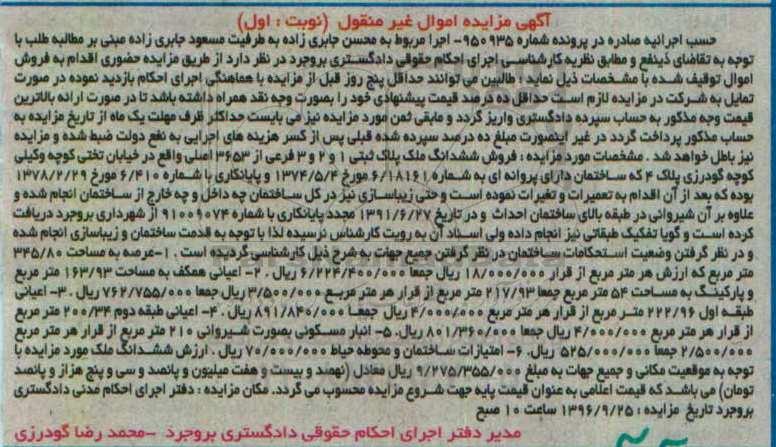 آگهی مزایده اموال غیر منقول (نوبت : اول)
حسب اجرائیه صادره در پرونده شماره ۹۵۰۹۳۵- اجرا مربوط به محسن جابری زاده به طرفیت مسعود جابری زاده مبنی بر مطالبه طلب با
توجه به تقاضای ذینفع و مطابق نظریه کارشناسی اجرای احکام حقوقی دادگستری بروجرد در نظر دارد از طریق مزایده حضوری اقدام به فروش
اموال توقیف شده با مشخصات ذیل نماید ؛ طالبین می توانند حداقل پنج روز قبل از مزایده با هماهنگی اجرای احکام بازدید نموده در صورت
تمایل به شرکت در مزایده لازم است حداقل ده درصد قیمت پیشنهادی خود را بصورت وجه نقد همراه داشته باشد تا در صورت ارائه بالاترین
قیمت وجه مذکور به حساب سپرده دادگستری واریز گردد و مابقی ثمن مورد مزایده نیز می بایست حداکثر ظرف مهلت یک ماه از تاریخ مزایده به
حساب مذکور پرداخت گردد در غیر اینصورت مبلغ ده درصد سپرده شده قبلی پس از کسر هزینه های اجرایی به نفع دولت ضبط شده و مزایده
نیز باطل خواهد شد . مشخصات مورد مزایده : فروش ششدانگ ملک پلاک ثبتی ۱ و ۲ و ۳ فرعی از ۳۶۵۳ اصلی واقع در خیابان تختی کوچه وکیلی
کوچه گودرزی پلاک ۴ که ساختمان دارای پروانه ای به شماره ۶/۱۸۱۶۱ مورخ ۱۳۷۴/۵/۴ و پایانکاری با شماره ۶/۴۱۰ مورخ ۱۳۷۸/۲/۲۹
بوده که بعد از آن اقدام به تعمیرات و تغییرات نموده است و حتی زیباسازی نیز در کل ساختمان چه داخل و چه خارج از ساختمان انجام شده و
علاوه بر آن شیروانی در طبقه بالای ساختمان احداث و در تاریخ ۱۳۹۱/۶/۲۷ مجدد پایانکاری با شماره ۹۱۰۰۹۰۷۴ از شهرداری بروجرد دریافت
کرده است و گویا تفکیک طبقاتی نیز انجام داده ولی اسناد آن به رویت کارشناس نرسیده لذا با توجه به قدمت ساختمان و زیباسازی انجام شده
و در نظر گرفتن وضعیت استحکامات ساختمان در نظر گرفتن جمیع جهات به شرح ذیل کارشناسی گردیده است . ۱-عرصه به مساحت ۳۴۵/۸۰
متر مربع که ارزش هر متر مربع از قرار ۱۸/۰۰۰/۰۰۰ ریال جمعا ۶/۲۲۴/۴۰۰/۰۰۰ ریال . ۲- اعیانی همکف به مساحت ۱۶۳/۹۳ متر مربع
و پارکینگ به مساحت ۵۴ متر مربع جمعا ۲۱۷/۹۳ متر مربع از قرار هر متر مربع ۳/۵۰۰/۰۰۰ ریال جمعا ۷۶۲/۷۵۵/۰۰۰ ریال . ۳- اعیانی
طبقه اول ۲۲۲/۹۶ متر مربع از قرار هر متر مربع ۴/۰۰۰/۰۰۰ ریال جمعا ۸۹۱/۸۴۰/۰۰۰ ریال . ۴- اعیانی طبقه دوم ۲۰۰/۳۴ متر مربع
از قرار هر متر مربع ۴/۰۰۰/۰۰۰ ریال جمعا ۸۰۱/۳۶۰/۰۰۰ ریال. ۵- انبار مسکونی بصورت شیروانی ۲۱۰ متر مربع از قرار هر متر مربع
۲/۵۰۰/۰۰۰ جمعا ۵۲۵/۰۰۰/۰۰۰ ریال. ۶- امتیازات ساختمان و محوطه حیاط ۷۰/۰۰۰/۰۰۰ ریال . ارزش ششدانگ ملک مورد مزایده با
توجه به موقعیت مکانی و جمیع جهات به مبلغ ۹/۲۷۵/۳۵۵/۰۰۰ ریال معادل (نهصد و بیست و هفت میلیون و پانصد و سی و پنج هزار و پانصد
تومان) می باشد که قیمت اعلامی به عنوان قیمت پایه جهت شروع مزایده محسوب می گردد. مکان مزایده : دفتر اجرای احکام مدنی دادگستری
بروجرد تاریخ مزایده : ۱۳۹۶/۹/۲۵ ساعت ۱۰ صبح
مدیر دفتر اجرای احکام حقوقی دادگستری بروجرد -محمد رضا گودرزی